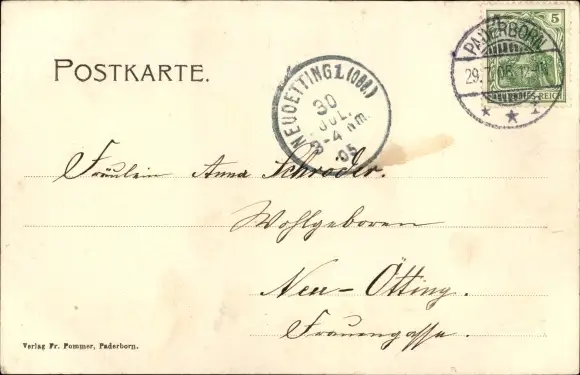 POSTKARTE.
5
PADERBORN
29.
REICH
NEUOETTING 1. (OBB.)
30
JUL.
3-4 Nm.
05
Fräulein Anna Schröder.
Wohlgeboren
Neu-Ötting.
Frauengasse.
Verlag Fr. Pommer, Paderborn.